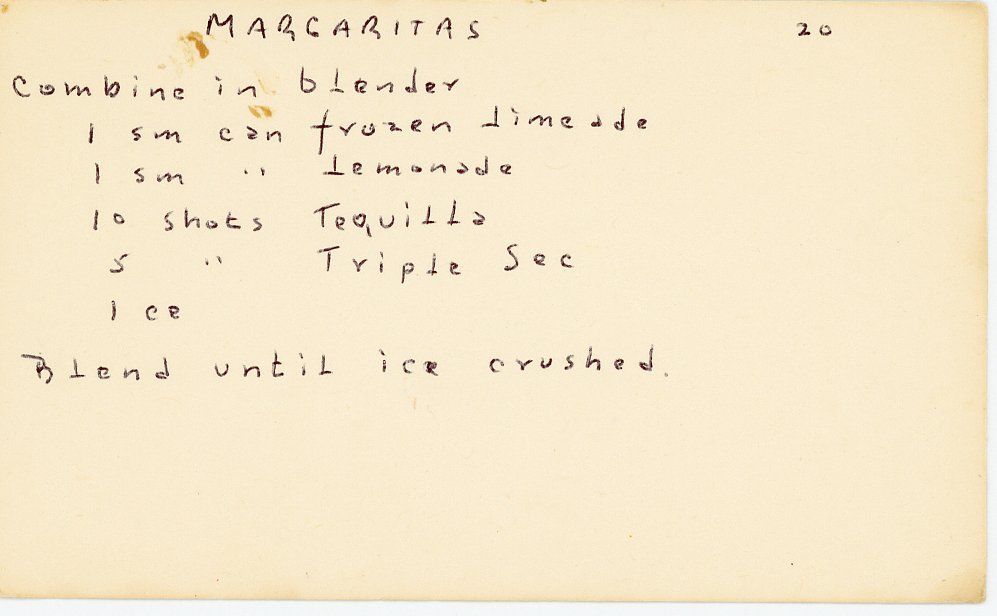 MARGARITAS 20
Combine in blender
1 sm can frozen limeade
1 sm " lemonade
10 shots Tequilla
5 " Triple Sec
Ice
Blend until ice crushed.